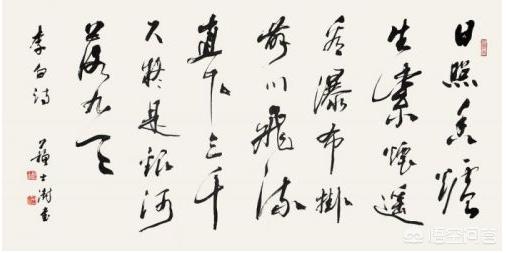 日照香爐
生紫煙遙
看瀑布掛
前川飛流
直下三千
尺疑是銀河
落九天
李白詩 蘇士澍書
悟空问答